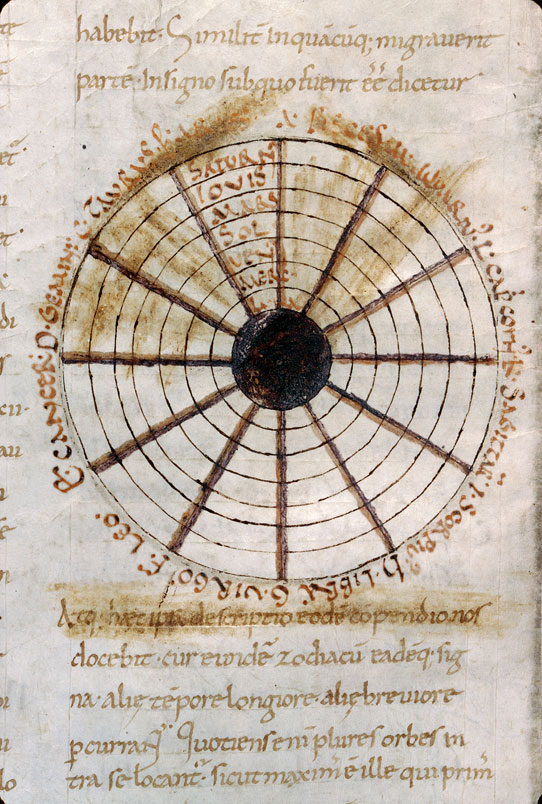 habebit· Similit̄ inquācūq; migraverit
partē· Insigno subquo fuerit
dicetur
SATURN
IOVIS
MARS
SOL
VEN
MERC
A
L· CAPCORN'
K· SAGITTARI'
I· SCORPIU'
h· LIBRA
G· VIRGO'
F· LEO'
CANCER·
D· GEMINI·
C· TAURUS·
Atq; hæc ipsa descriptio eodē cōpendio nos
docebit· cur eundē zodiacū eadēq; sig
na· alię tēpore longiore· alię breviore
Quotiens enī plures orbes in
tra se locant̄· sicut maxim̄ ē ille qui prim̄